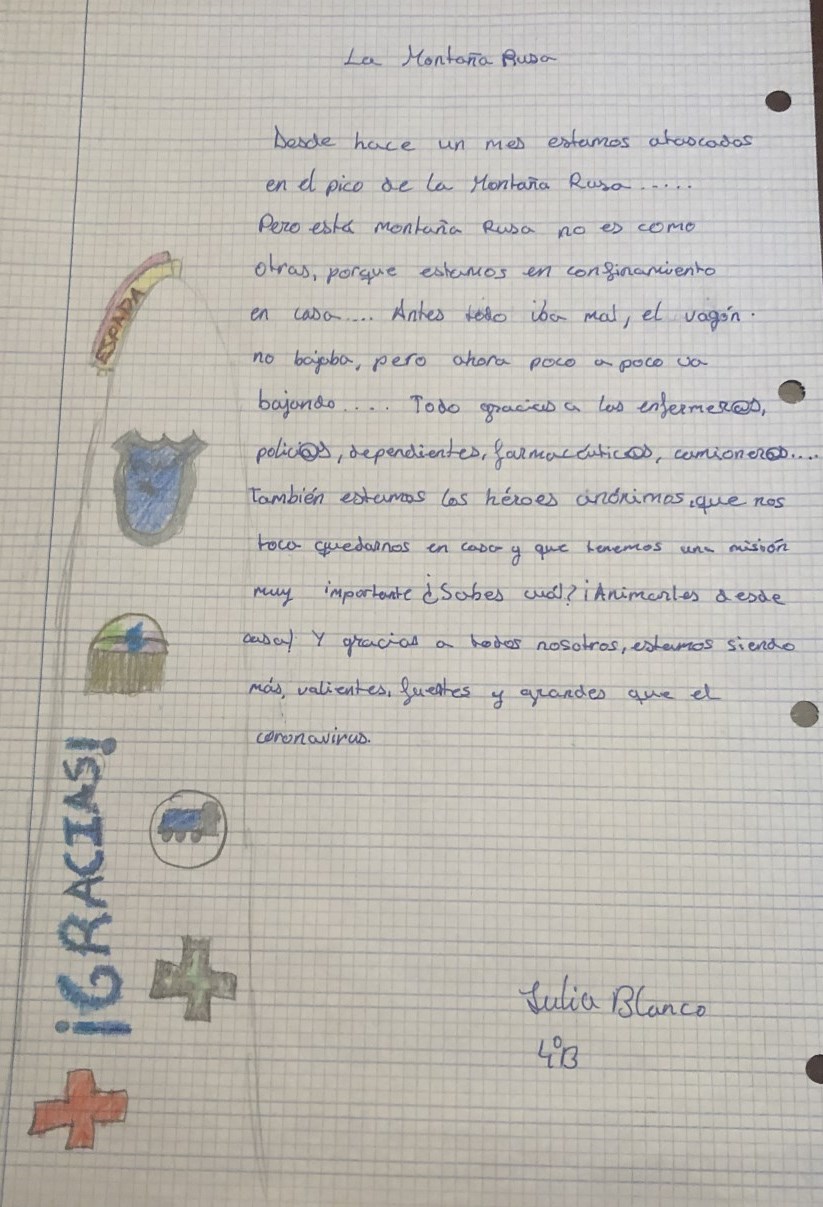 La Montaña Rusa
Desde hace un mes estamos atascados
en el pico de la Montaña Rusa......
Pero está montaña Rusa no es como
otras, porque estamos en confinamiento
en casa.... Antes todo iba mal, el vagón.
no bajaba, pero ahora poco a poco va
bajando.... Todo gracias a los enfermer@s,
polici@s, dependientes, farmacéutic@s, camioner@s....
También estamos los héroes anónimos, que nos
toca quedarnos en casa y que tenemos una misión
muy importante ¿Sabes cuál? ¡Animarles desde
casa! Y gracias a todos nosotros, estamos siendo
más, valientes, fuertes y grandes que el
coronavirus.
ESPAÑA
¡GRACIAS!
Julia Blanco
4ºB